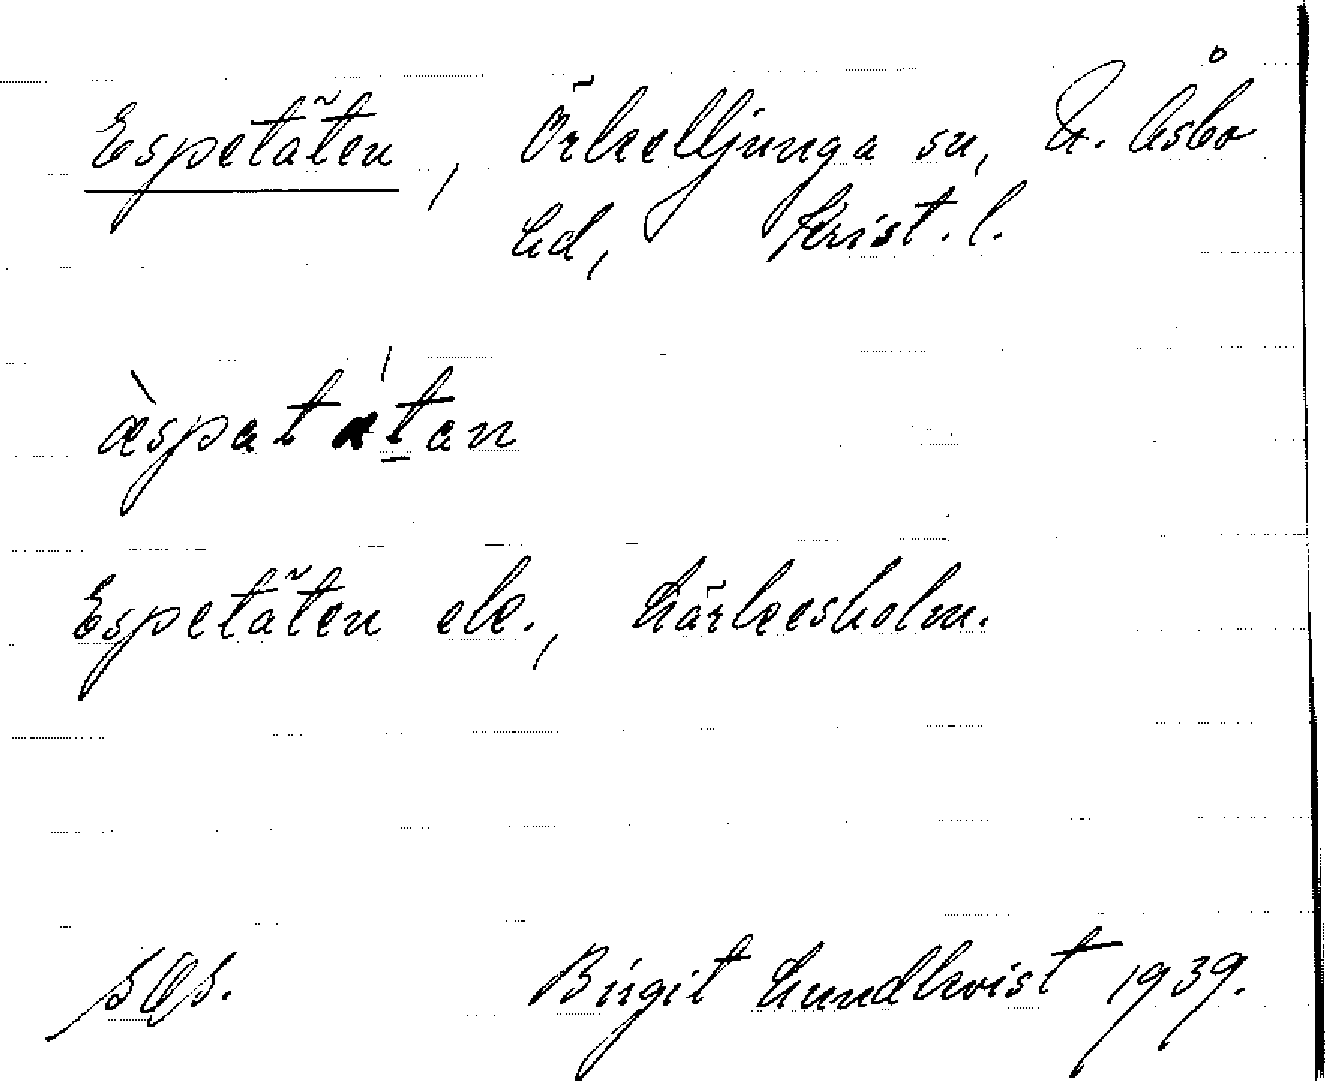 Espetäten, Örkelljunga sn, N. Åsbo
hd, Krist. l.
Espetäten ek., Kärleksholm.
Birgit Lundkvist 1939.